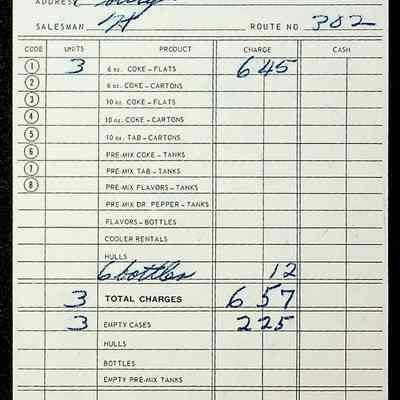 ADDRESS
SALESMAN H ROUTE NO. 302
CODE UNITS PRODUCT CHARGE CASH
1 3 6 oz. COKE—FLATS 6 45
2 6 oz. COKE—CARTONS
3 10 oz. COKE—FLATS
4 10 oz. COKE—CARTONS
5 10 oz. TAB—CARTONS
6 PRE-MIX COKE—TANKS
7 PRE-MIX TAB—TANKS
8 PRE-MIX FLAVORS—TANKS
PRE-MIX DR. PEPPER—TANKS
FLAVORS—BOTTLES
COOLER RENTALS
HULLS
6 bottles 12
3 TOTAL CHARGES 6 57
3 EMPTY CASES 2 25
HULLS
BOTTLES
EMPTY PRE-MIX TANKS